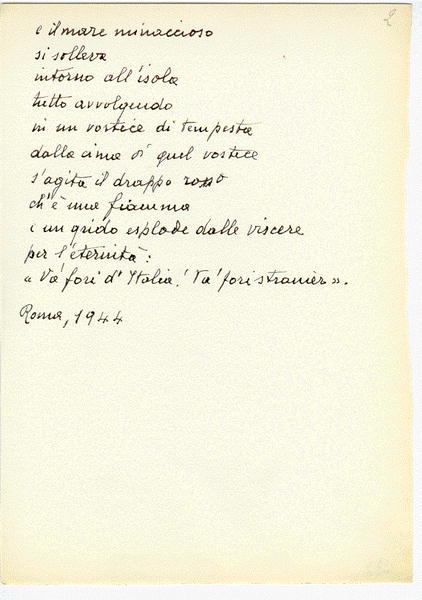 2
e il mare minaccioso
si solleva
intorno all'isola
tutto avvolgendo
in un vortice di tempesta
dalla cima di quel vortice
s'agita il drappo rosso
ch'è una fiamma
e un grido esplode dalle viscere
per l'éternità:
« Va' fori d'Italia! Va' fori stranier ».
Roma, 1944